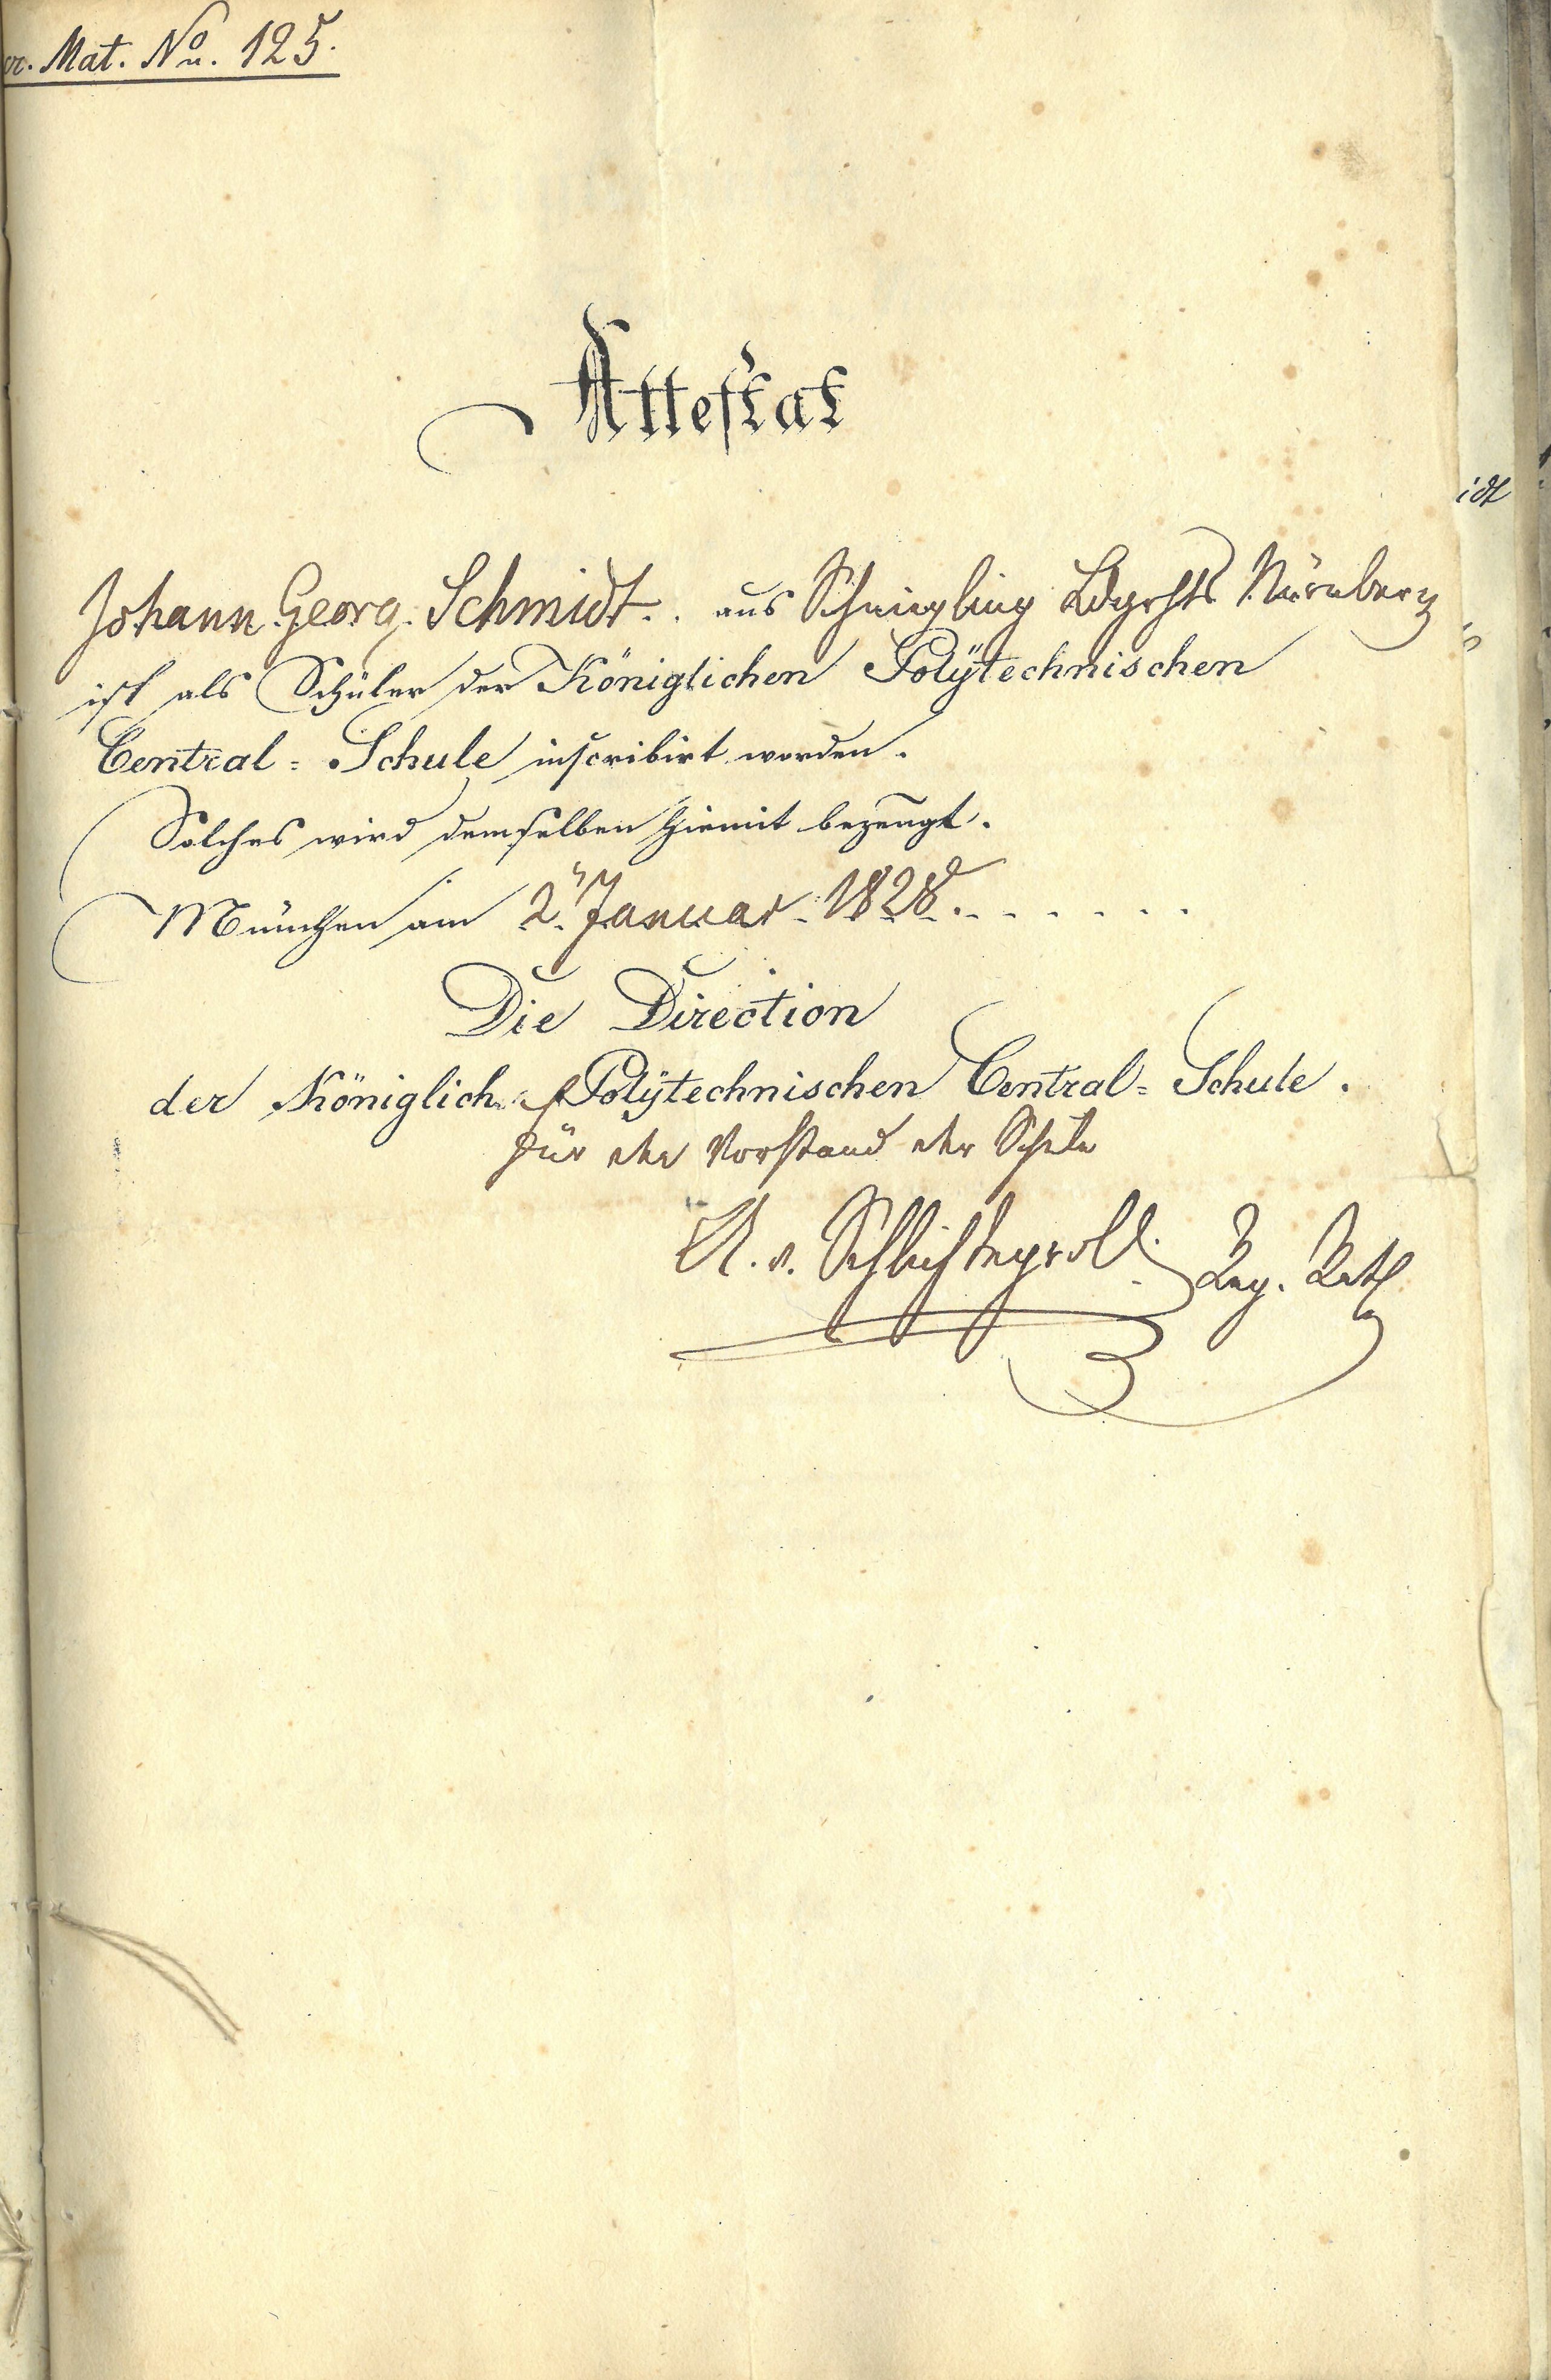 Mat. No. 125.
Attestat
Johann Georg Schmidt.. aus Schniegling Ldgrchts Nürnberg
ist als Schüler der Königlichen Polÿtechnischen
Central=Schule inscribirt worden.
Solches wird demselben hiemit bezeugt.
München am 2. Januar 1828.
Die Direction
der Königlich Polÿtechnischen Central=Schule.
für den Vorstand der Schule
A. v. Schlichtegroll. Reg. Rath
idt